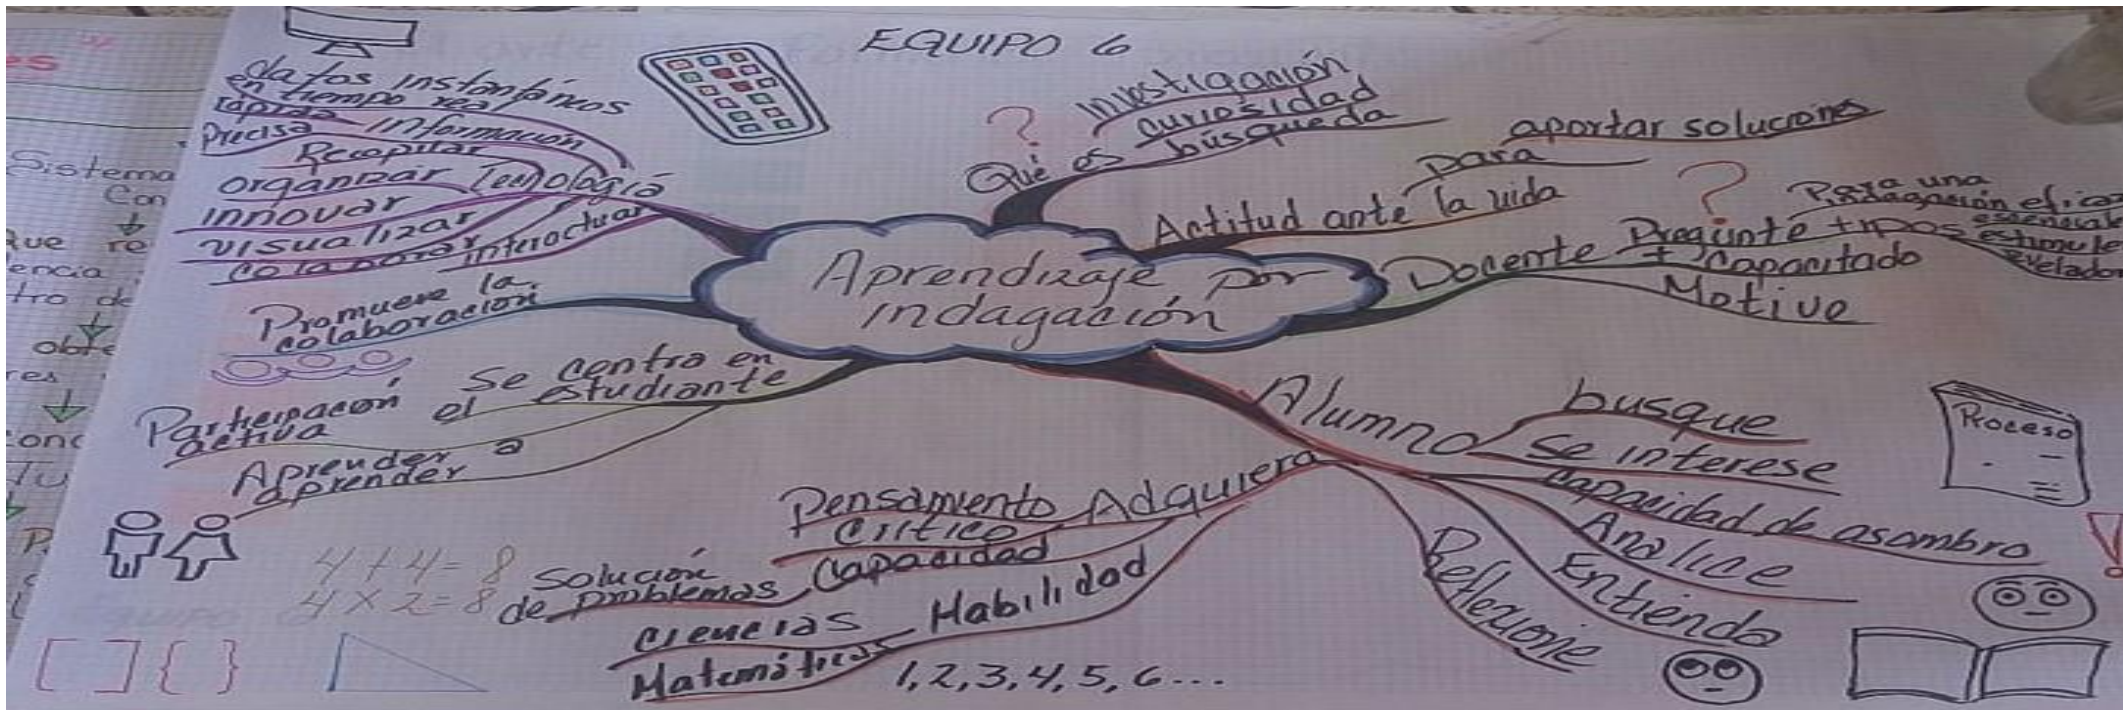 EQUIPO 6
Aprendizaje por
indagación
¿Qué es
investigación
curiosidad
búsqueda
Actitud ante la vida
para
aportar soluciones
Docente
Pregunte
tipos
Para una
indagación eficaz
esencial
estimule
+ Capacitado
Motive
Alumno
busque
se interese
Capacidad de asombro
Analice
Entienda
Reflexione
Adquiera
Pensamiento
Crítico
Capacidad
Solución
de problemas
Habilidad
Ciencias
Matemáticas
1, 2, 3, 4, 5, 6...
Proceso
Se centra en
el estudiante
Participación
activa
Aprender a
aprender
Promueve la
colaboración
Tecnología
datos instantáneos
en tiempo real
rápida información
Precisa
Recopilar
organizar
innovar
visualizar
colaborar
interactuar
4+4=8
4x2=8
[ ] { }
es
Sistema
Con
que re
encia
tro de
obte
res
conc
Tu